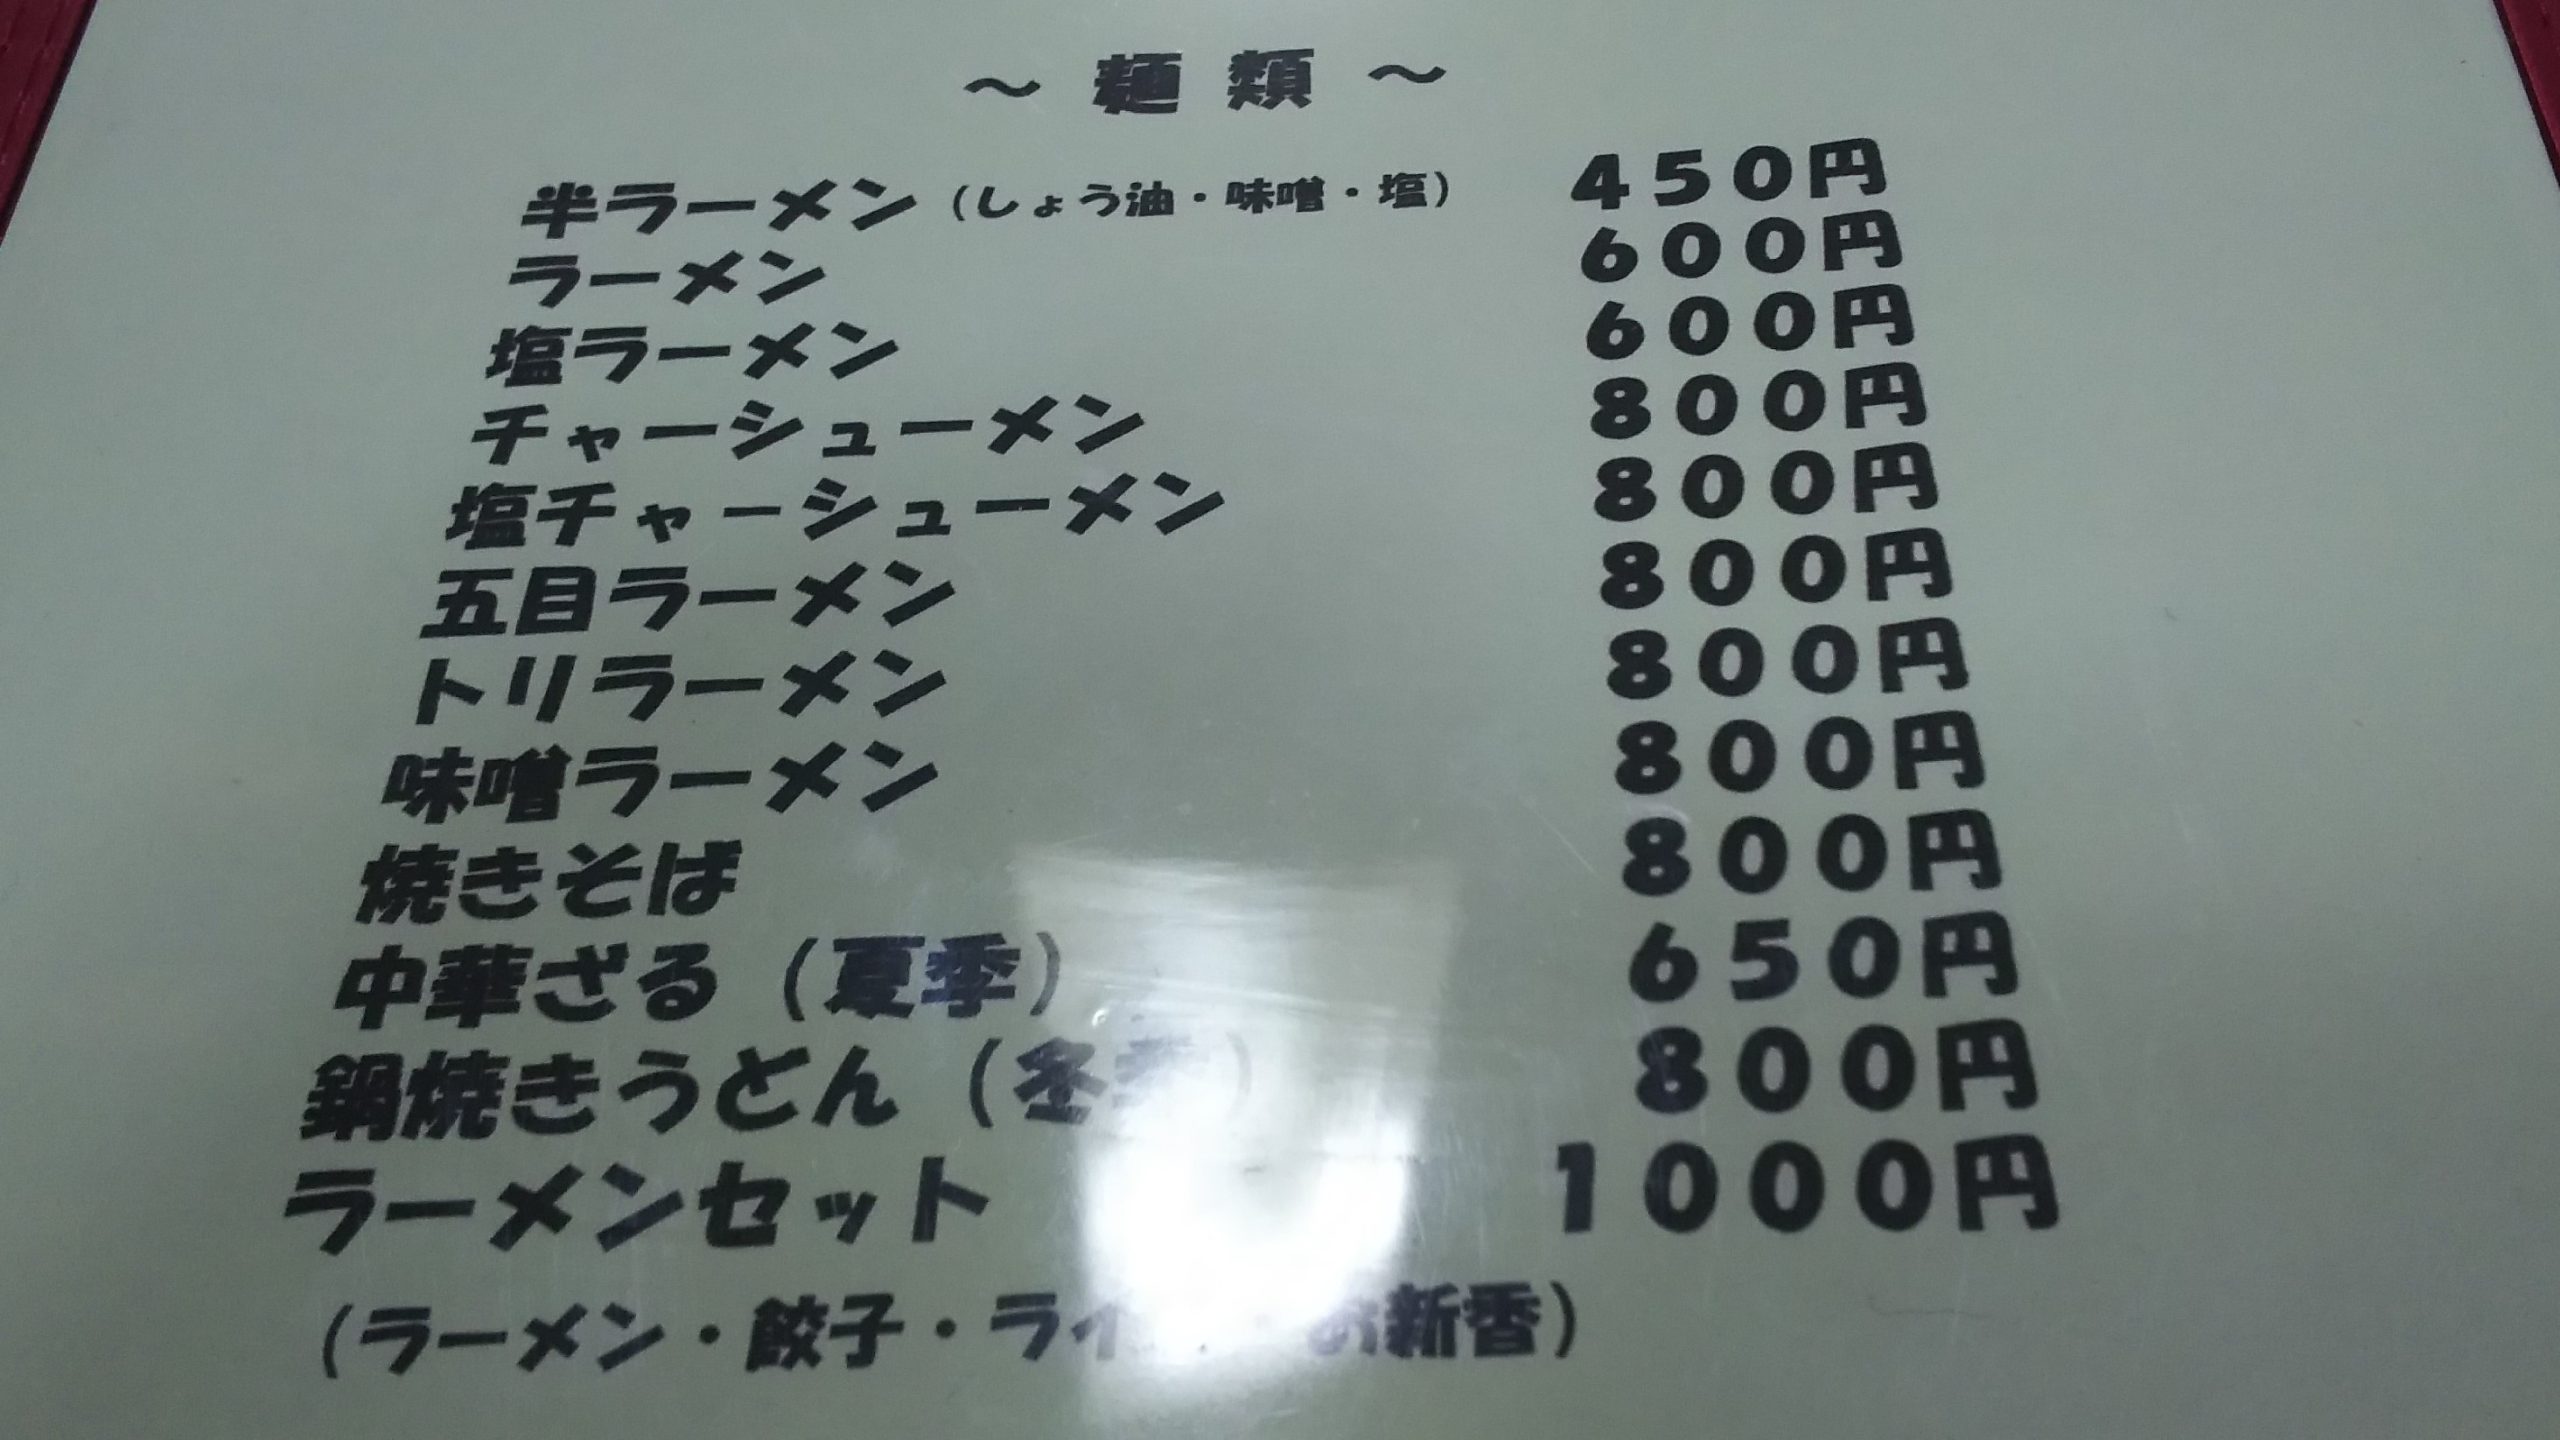 ～ 麺 類 ～
半ラーメン（しょう油・味噌・塩） ４５０円
ラーメン ６００円
塩ラーメン ６００円
チャーシューメン ８００円
塩チャーシューメン ８００円
五目ラーメン ８００円
トリラーメン ８００円
味噌ラーメン ８００円
焼きそば ８００円
中華ざる（夏季） ６５０円
鍋焼きうどん（冬季） ８００円
ラーメンセット １０００円
（ラーメン・餃子・ライ お新香）